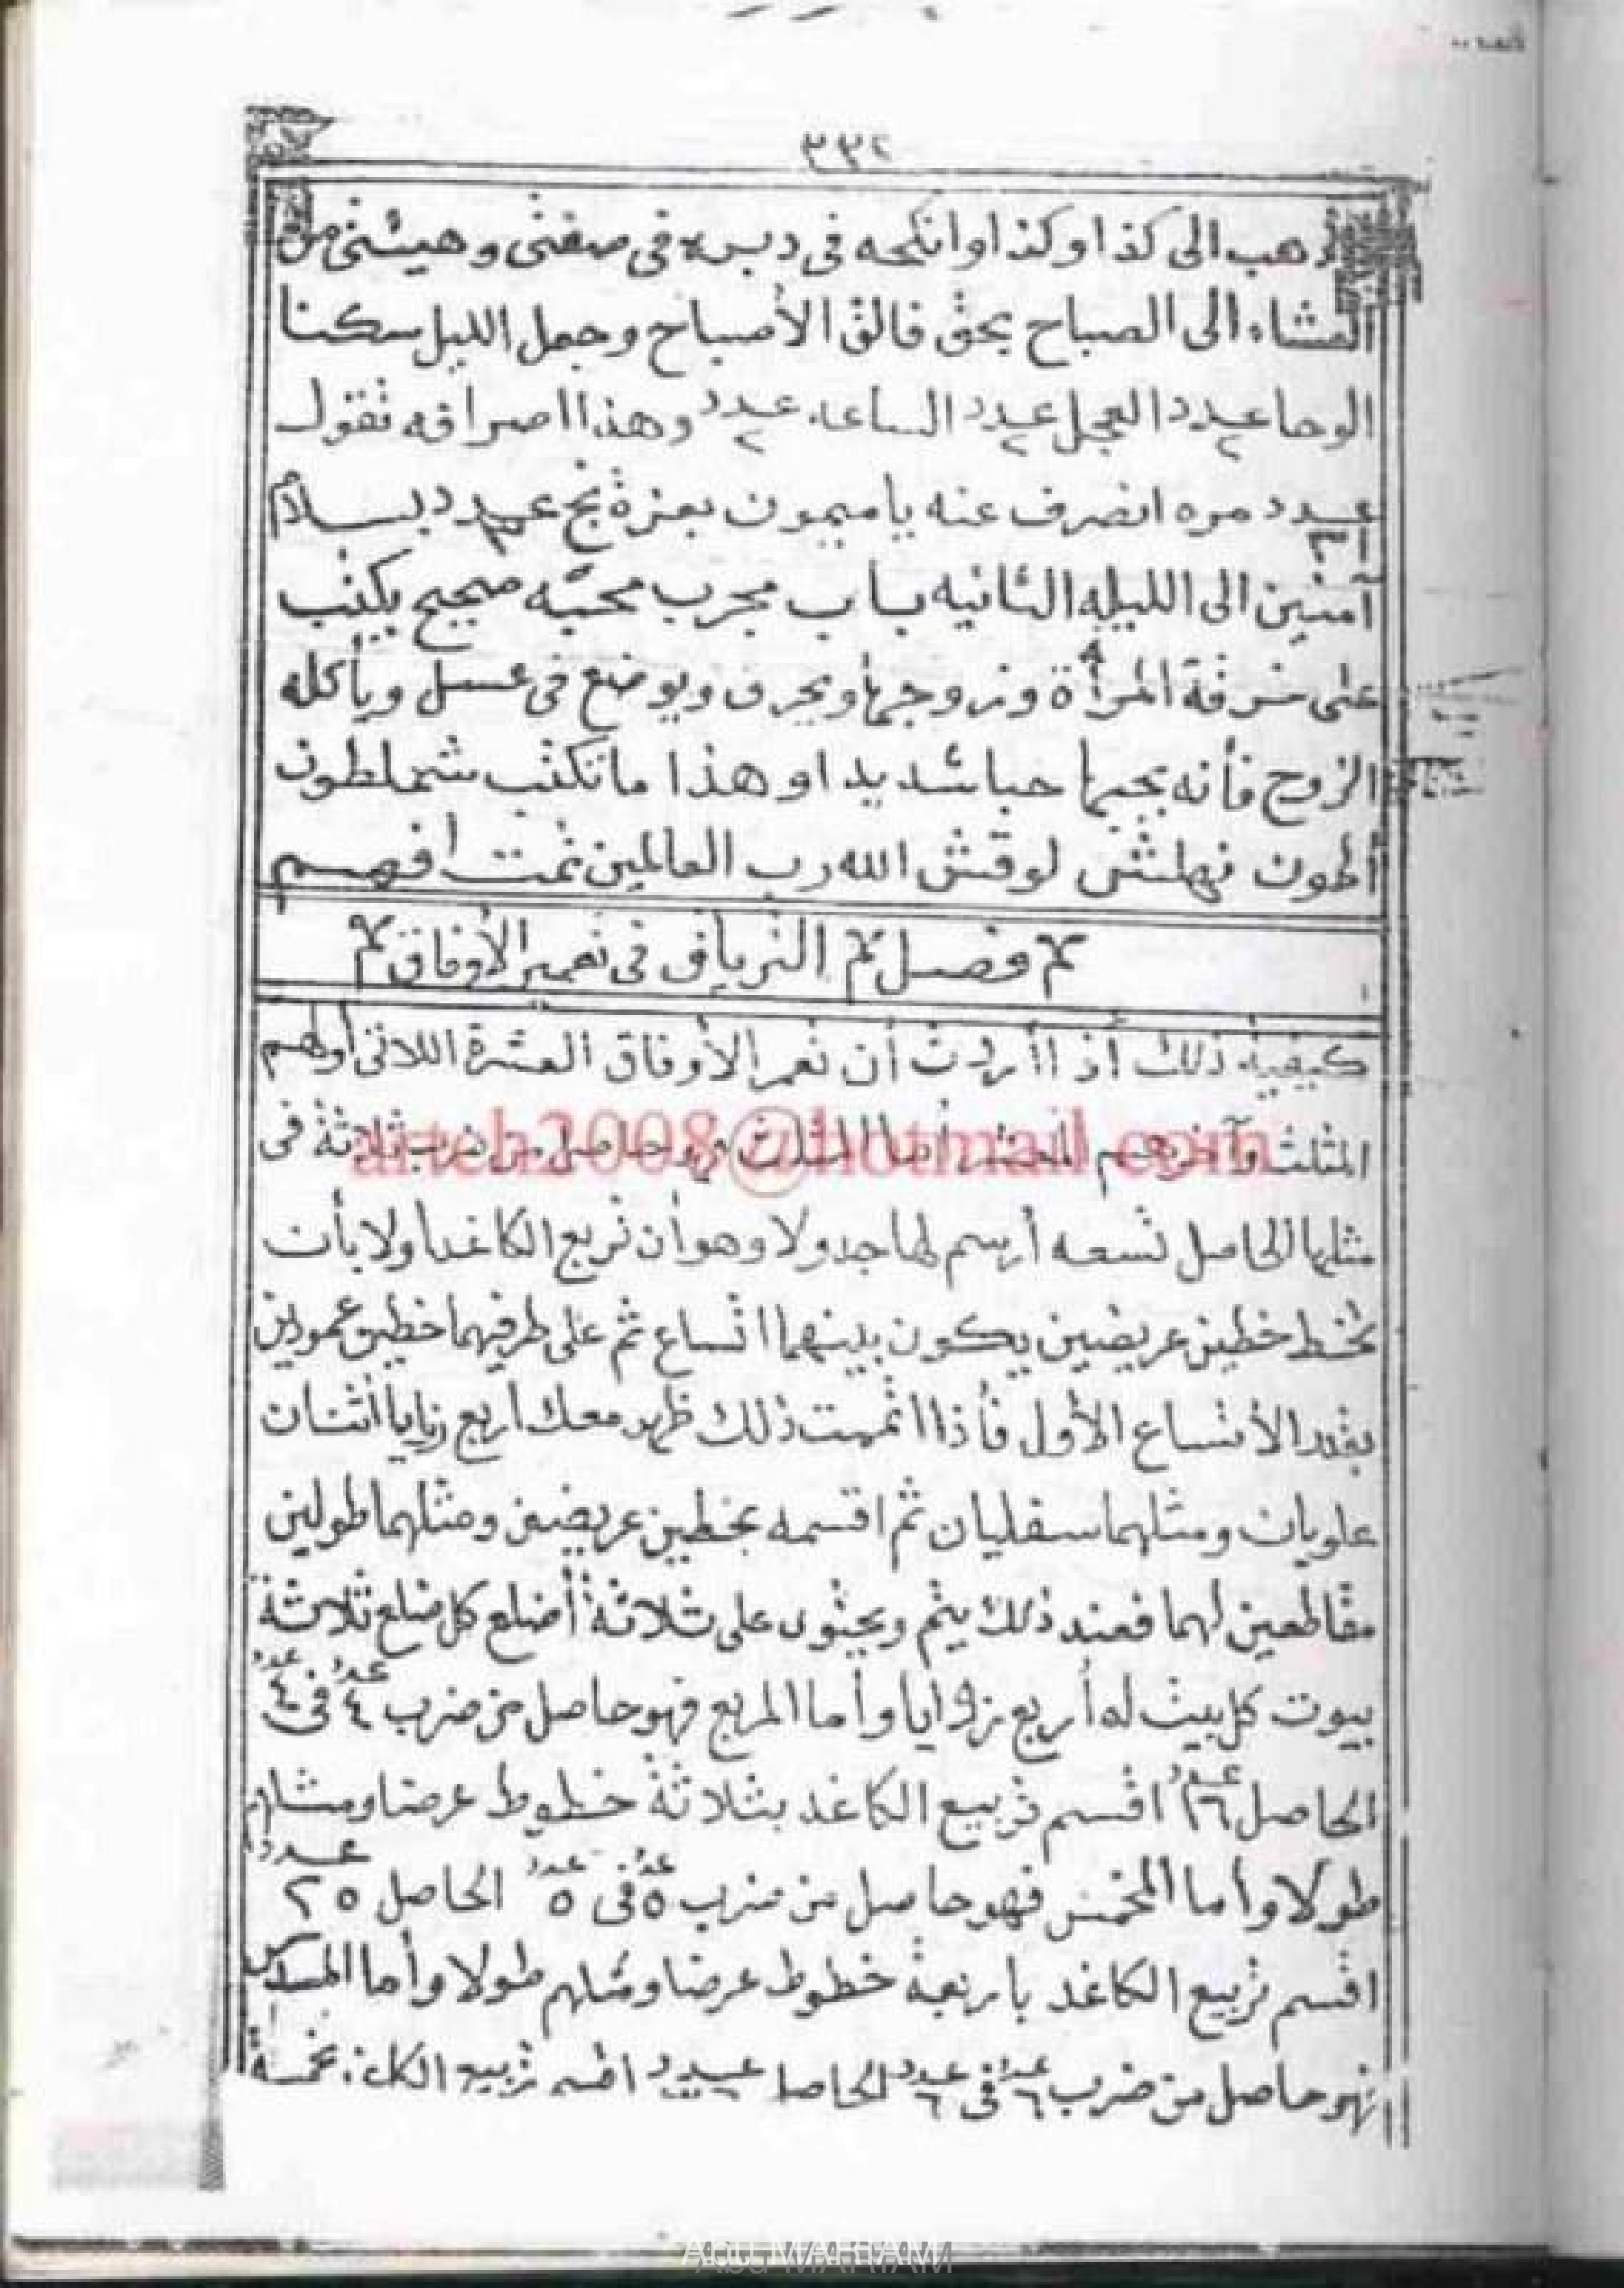 ٣٣٢
ذهب الى كذا وكذا وانكحه فى دبره فى صفتى وهيئتى من
العشاء الى الصباح بحق فالق الأصباح وجعل الليل سكنا
الوحا عدد ٢ العجل عدد ٢ الساعه عدد ٢ وهذا اصرافه تقول
عدد مره انصرف عنه يا ميمون بعزة بخ عدد بسلام
آمنين الى الليله الثانيه باب مجرب محبه صحيح يكتب
على خرقة المرأة وزوجها ويحرق ويوضع فى عسل ويأكله
الزوج فأنه يحبها حبا شديدا وهذا ما تكتب شملطون
اطون نهلشش لوقش الله رب العالمين تمت افهم
فصل الترياق فى تعمير الأوفاق
كيفية ذلك أذا أردت أن تعمر الأوفاق العشرة اللاتى أولهم
المثلث وآخرهم أما المثلث فهو حاصل من ضرب ثلاثة فى
مثلها الحاصل تسعه أرسم لها جدولا وهو أن تربع الكاغد أولا بأن
تخط خطين عريضين يكون بينهما اتساع ثم على طرفيهما خطين عمودين
بقدر الأتساع الأول فأذا اتممت ذلك ظهر معك أربع زيايا أثنان
علويان ومثلهما سفليان ثم اقسمه بخطين عريضين ومثلهما طولين
مقاطعين لهما فعند ذلك يتم ويحتوى على ثلاثة أضلع كل ضلع ثلاثة
بيوت كل بيت له أربع زوايا وأما المربع فهو حاصل من ضرب عدد ٤ فى عدد ٤
الحاصل عدد ١٦ اقسم تربيع الكاغد بثلاثة خطوط عرضا ومثلهم
طولا وأما المخمس فهو حاصل من ضرب عدد ٥ فى عدد ٥ الحاصل عدد ٢٥
اقسم تربيع الكاغد بأربعة خطوط عرضا ومثلهم طولا وأما المسدس
فهو حاصل من ضرب عدد ٦ فى عدد ٦ الحاصل عدد اقسم تربيع الكاغد بخمسة
arteh2008@hotmail.com
Abu MARIAM